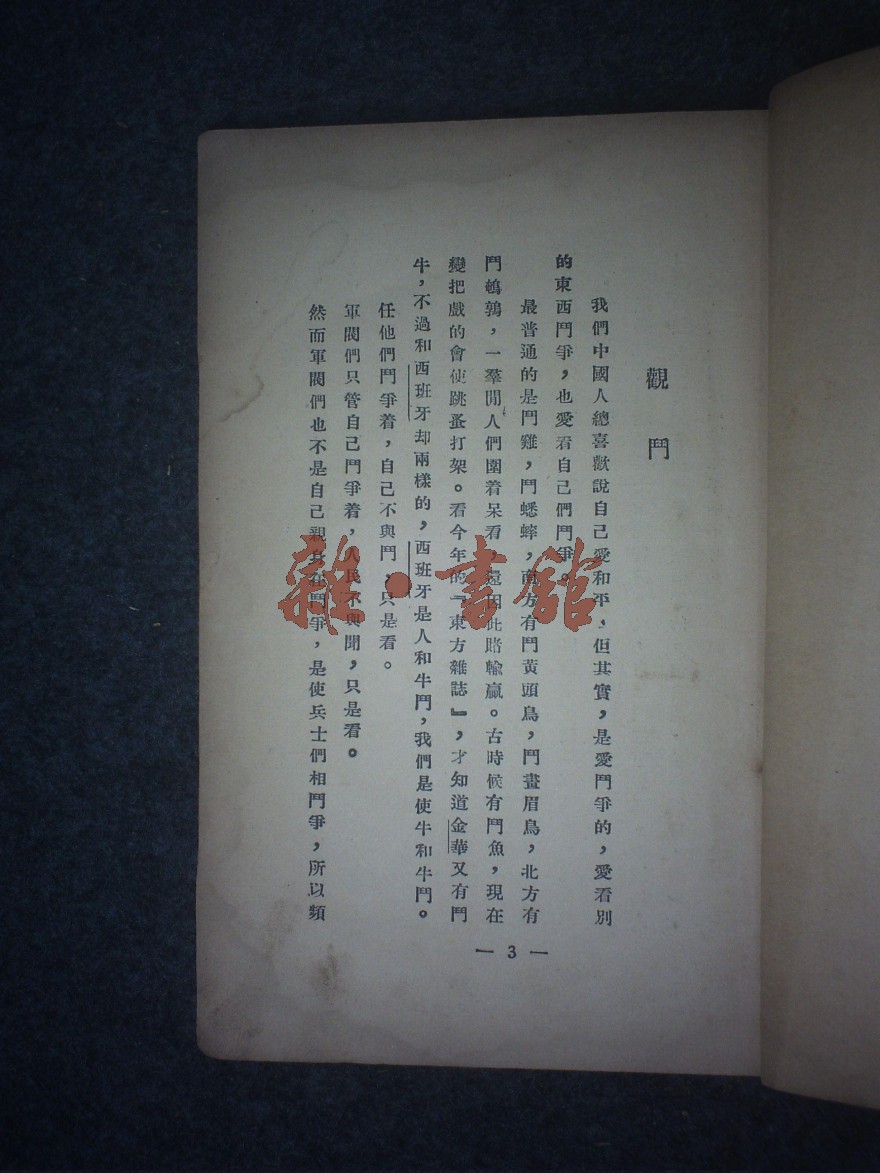 觀鬥
我們中國人總喜歡說自己愛和平，但其實，是愛鬥爭的，愛看別
的東西鬥爭，也愛看自己們鬥爭。
最普通的是鬥雞，鬥蟋蟀，南方有鬥黃頭鳥，鬥畫眉鳥，北方有
鬥鵪鶉，一羣閒人們圍着呆看，還因此賭輸贏。古時候有鬥魚，現在
變把戲的會使跳蚤打架。看今年的『東方雜誌』，才知道金華又有鬥
牛，不過和西班牙却兩樣的，西班牙是人和牛鬥，我們是使牛和牛鬥。
任他們鬥爭着，自己不與鬥，只是看。
軍閥們只管自己鬥爭着，人民不與聞，只是看。
然而軍閥們也不是自己親身在鬥爭，是使兵士們相鬥爭，所以頻
— 3 —
雜·書館